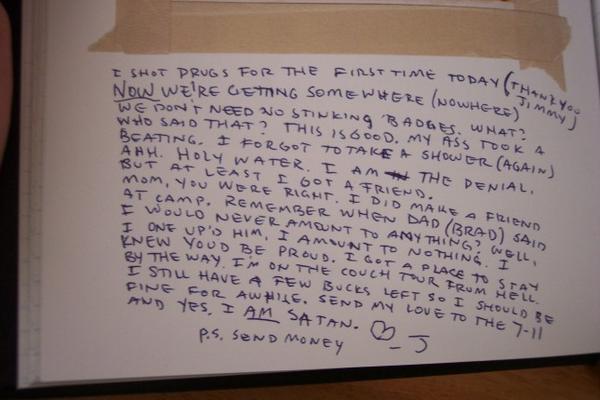 I SHOT DRUGS FOR THE FIRST TIME TODAY (THANK YOU JIMMY)
NOW WE'RE GETTING SOMEWHERE (NOWHERE)
WE DON'T NEED NO STINKING BADGES. WHAT?
WHO SAID THAT? THIS IS GOOD. MY ASS TOOK A
BEATING. I FORGOT TO TAKE A SHOWER (AGAIN)
AHH. HOLY WATER. I AM THE DENIAL.
BUT AT LEAST I GOT A FRIEND.
MOM, YOU WERE RIGHT. I DID MAKE A FRIEND
AT CAMP. REMEMBER WHEN DAD (BRAD) SAID
I WOULD NEVER AMOUNT TO ANYTHING? WELL,
I ONE UP'D HIM. I AMOUNT TO NOTHING. I
KNEW YOUD BE PROUD. I GOT A PLACE TO STAY
BY THE WAY, I'M ON THE COUCH TOUR FROM HELL.
I STILL HAVE A FEW BUCKS LEFT SO I SHOULD BE
FINE FOR AWHILE. SEND MY LOVE TO THE 7-11
AND YES, I AM SATAN. ♡ - J
P.S. SEND MONEY